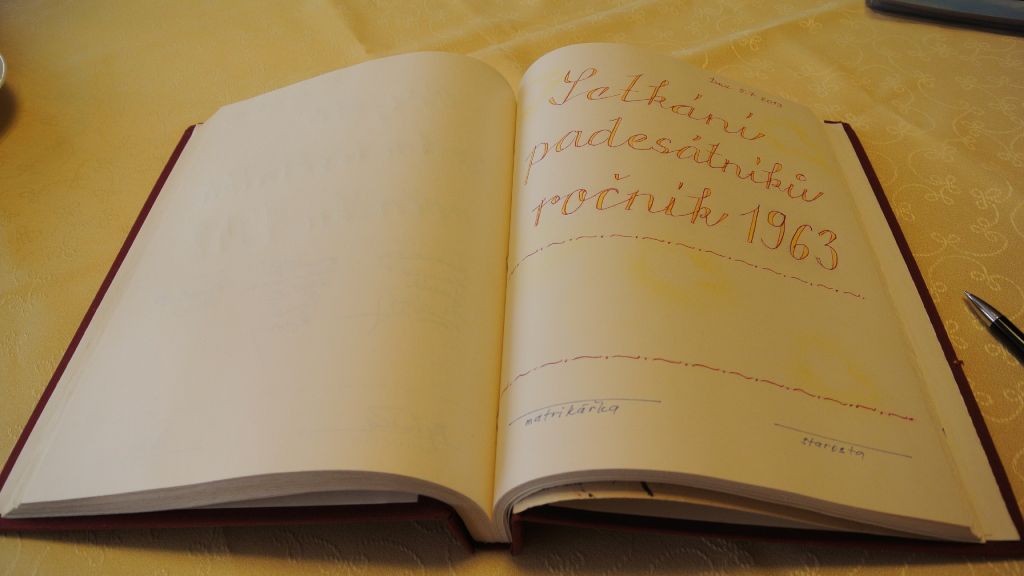 Dne 5.7. 2013
Setkání
padesátníků
ročník 1963
matrikářka
starosta